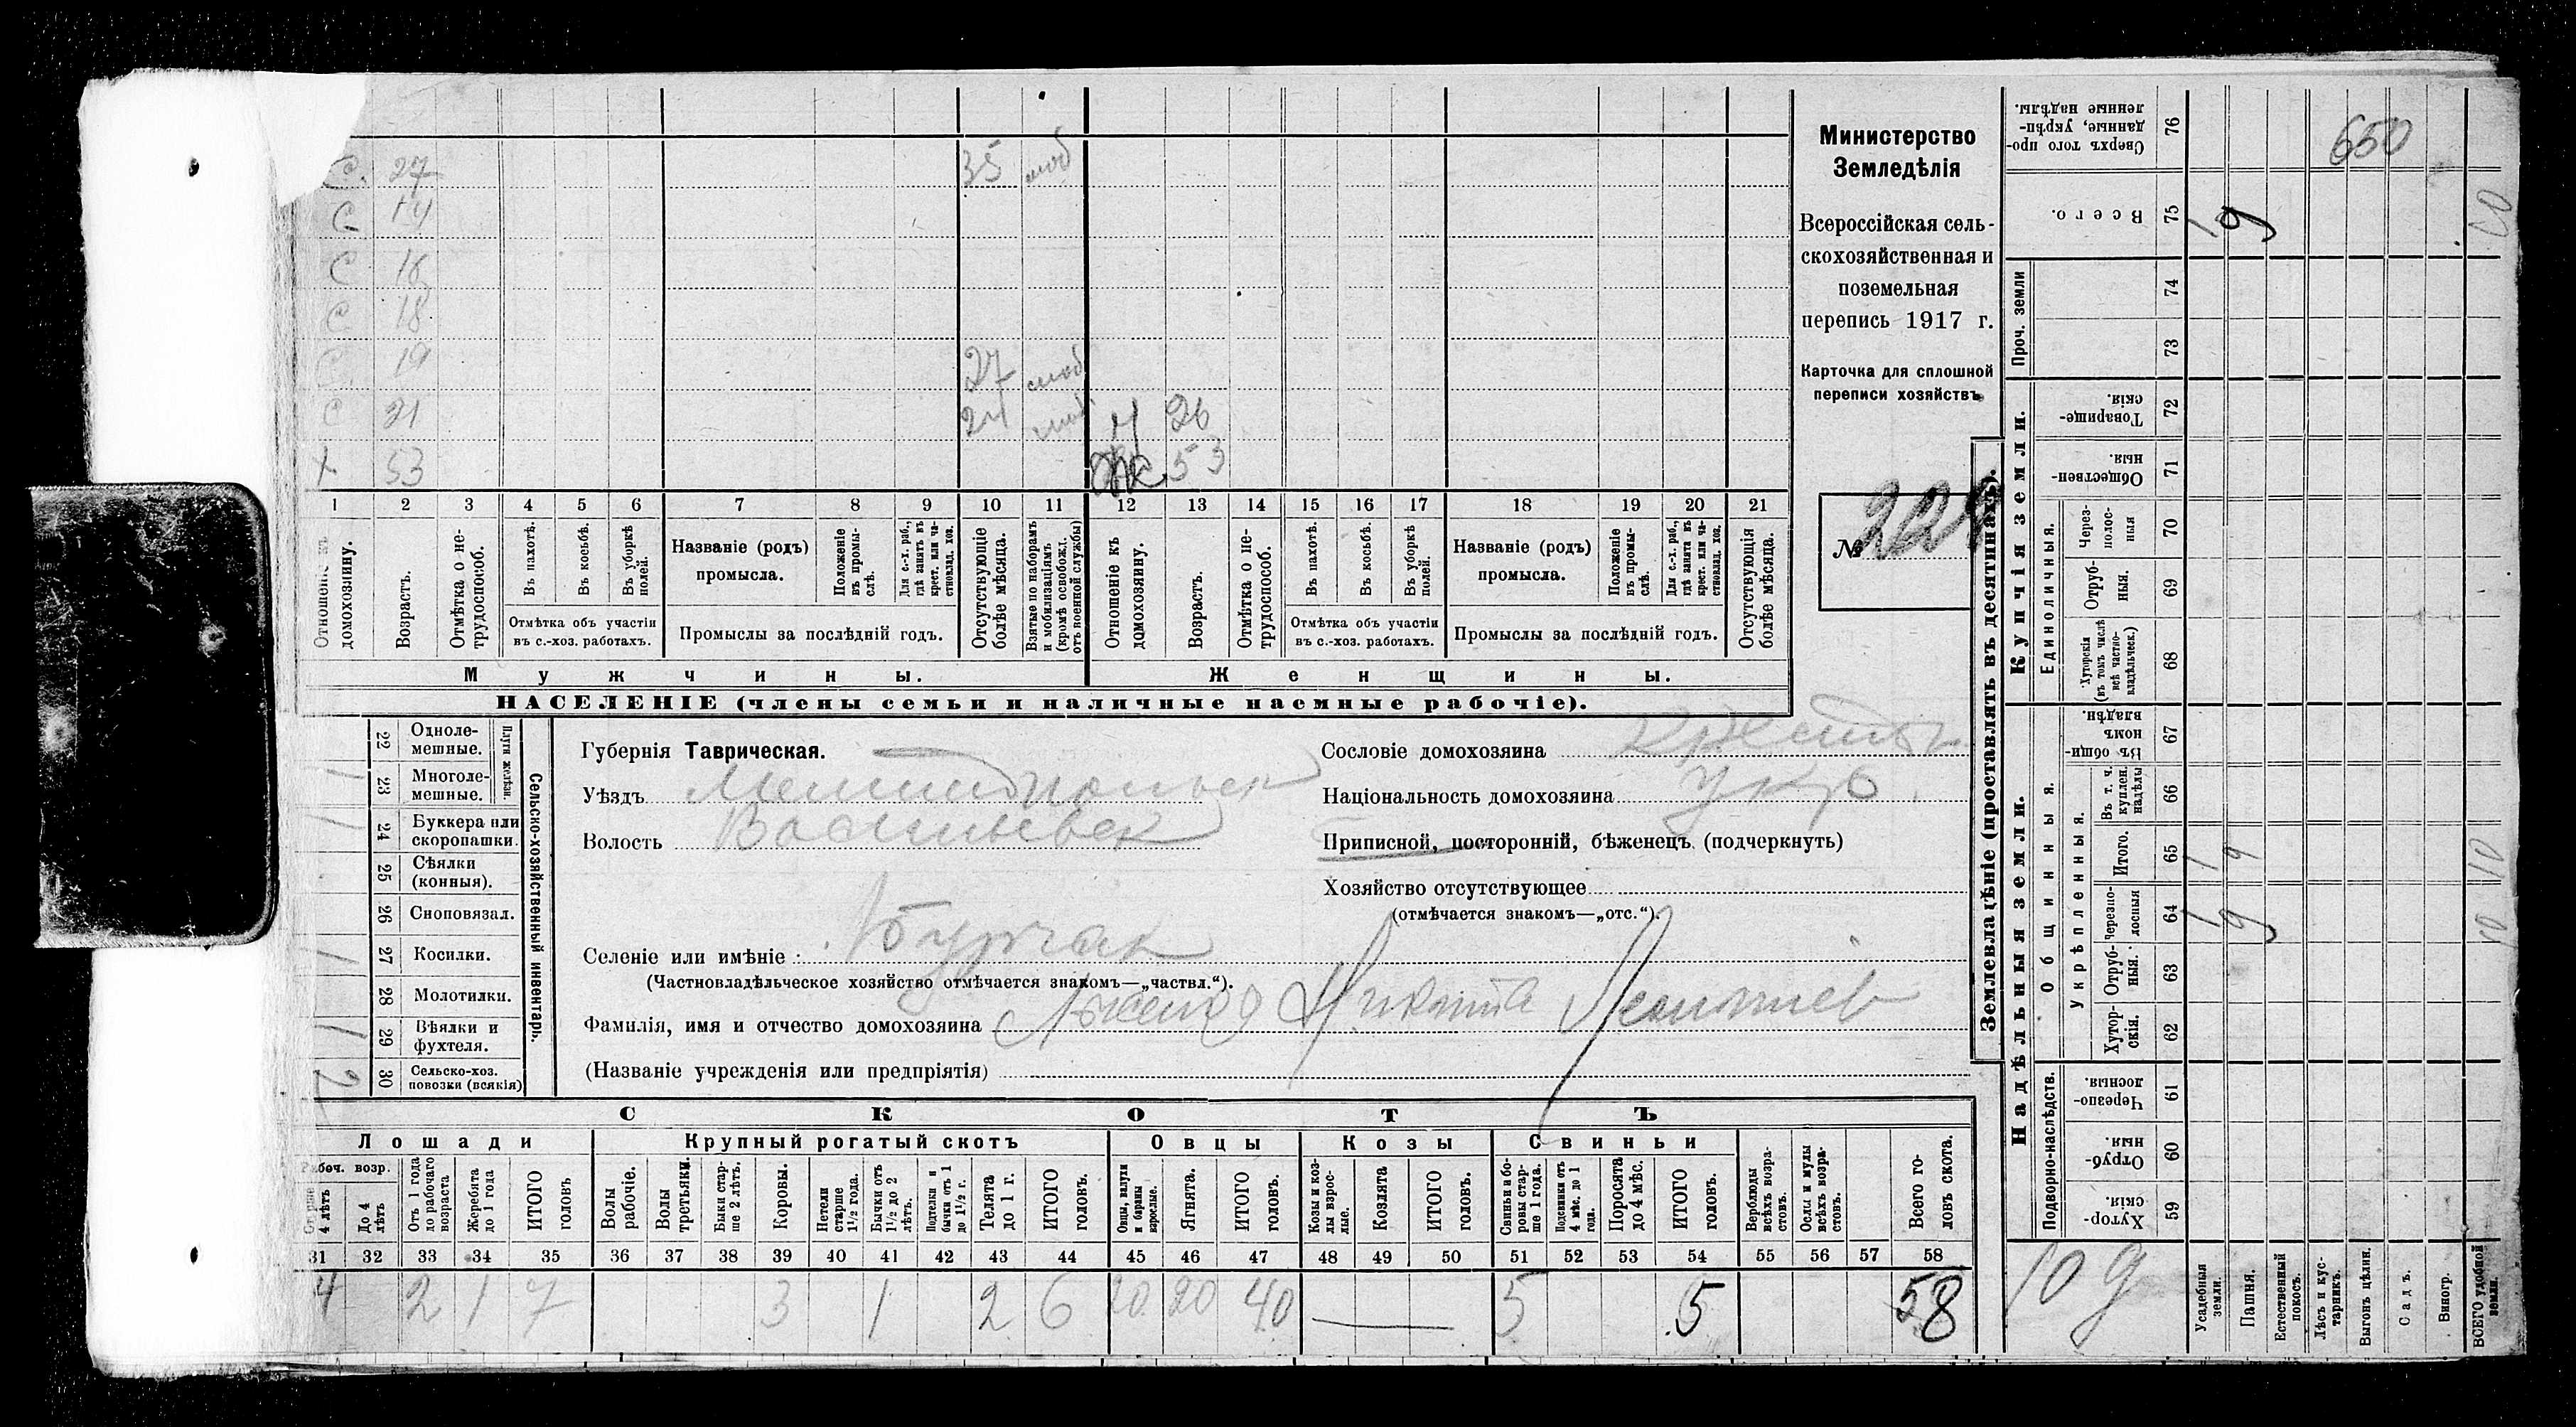 С. 27 35 моб
С 14
С 16
С 18
С 19 27 моб
С 21 24 моб. 26
Х 53 Ж. 53
1 2 3 4 5 6 7 8 9 10 11 12 13 14 15 16 17 18 19 20 21
Отношеніе къ домохозяину.
Возрастъ.
Отмѣтка о не-
трудоспособ.
Въ пахотѣ.
Въ косьбѣ.
Въ уборкѣ
полей.
Отмѣтка объ участіи
въ с.-хоз. работахъ.
Названіе (родъ)
промысла.
Положеніе
въ промы-
слѣ.
Для с.-х. раб.,
гдѣ занятъ въ
крест. или ча-
стновлад. хоз.
Промыслы за послѣдній годъ.
Отсутствующіе
болѣе мѣсяца.
Взятые по наборамъ
и мобилизаціямъ
(кромѣ освобожд.
отъ военной службы)
Отношеніе къ
домохозяину.
Возрастъ.
Отмѣтка о не-
трудоспособ.
Въ пахотѣ.
Въ косьбѣ.
Въ уборкѣ
полей.
Отмѣтка объ участіи
въ с.-хоз. работахъ.
Названіе (родъ)
промысла.
Положеніе
въ промы-
слѣ.
Для с.-х. раб.,
гдѣ занята въ
крест. или ча-
стновлад. хоз.
Промыслы за послѣдній годъ.
Отсутствующія
болѣе мѣсяца.
Мужчины.
Женщины.
НАСЕЛЕНІЕ (члены семьи и наличные наемные рабочіе).
Министерство
Земледѣлія
Всероссійская сель-
скохозяйственная и
поземельная
перепись 1917 г.
Карточка для сплошной
переписи хозяйствъ
№
22 Одноле-
мешные.
23 Многоле-
мешные.
Плуги желѣзн.
24 Буккера или
скоропашки.
25 Сѣялки
(конныя).
26 Сноповязал.
27 Косилки.
28 Молотилки.
29 Вѣялки и
фухтеля.
30 Сельско-хоз.
повозки (всякія)
1
1
1
1
2
Сельско-хозяйственный инвентарь.
Губернія Таврическая.
Уѣздъ Мелитопольск
Волость Васильевск
Селеніе или имѣніе: Бурчак
(Частновладѣльческое хозяйство отмѣчается знакомъ—„частвл.“).
Фамилія, имя и отчество домохозяина Никита Леонтиев
(Названіе учрежденія или предпріятія)
Сословіе домохозяина
Національность домохозяина Укр.
Приписной, посторонній, бѣженецъ (подчеркнуть)
Хозяйство отсутствующее
(отмѣчается знакомъ—„отс.“).
СКОТЪ
Лошади
Крупный рогатый скотъ
Овцы
Козы
Свиньи
Рабоч. возр.
Старше
4 лѣтъ
До 4
лѣтъ
Отъ 1 года
до рабочаго
возраста
Жеребята
до 1 года
ИТОГО
головъ
Волы
рабочіе.
Волы
третьяки.
Быки стар-
ше 2 лѣтъ.
Коровы.
Нетели
старше
1½ года.
Бычки отъ
1½ до 2
лѣтъ.
Подтелки и
бычки отъ 1
до 1½ г.
Телята
до 1 г.
ИТОГО
головъ.
Овцы, валухи
и бараны
взрослые.
Ягнята.
ИТОГО
головъ.
Козы и коз-
лы взрос-
лые.
Козлята
ИТОГО
головъ.
Свиньи и бо-
ровы стар-
ше 1 года.
Подсвинки отъ
4 мѣс. до 1
года.
Поросята
до 4 мѣс.
ИТОГО
головъ.
Верблюды
всѣхъ возра-
стовъ.
Ослы и мулы
всѣхъ возра-
стовъ.
Всего го-
ловъ скота.
31 32 33 34 35 36 37 38 39 40 41 42 43 44 45 46 47 48 49 50 51 52 53 54 55 56 57 58
4 2 1 7 3 1 2 6 20 20 40 — 5 5 58
Землевладѣніе (проставлять въ десятинахъ).
Купчія земли.
Надѣльныя земли.
Сверхъ того про-
данные, укрѣп-
ленные надѣлы.
76
650
Всего.
75
1 9
10
Проч. земли
74
73
Товарище-
скія.
72
Обществен-
ныя.
71
Единоличныя.
Через-
полос-
ныя
70
Отруб-
ныя.
69
Хуторскія
(въ томъ числѣ
всѣ частно-
владѣльческ.)
68
Общинныя.
Въ общин-
номъ
владѣн.
67
Укрѣпленныя.
Въ т. ч.
куплен.
надѣлы
66
Итого.
65
1 9
10
Черезпо-
лосныя
64
1 9
10
Отруб-
ныя.
63
Хутор-
скія.
62
Подворно-наслѣдств.
Черезпо-
лосныя.
61
Отруб-
ныя.
60
Хутор-
скія.
59
10 9
Усадебныя
земли.
Пашня.
Естественный
покосъ.
Лѣсъ и кус-
тарникъ.
Выгонъ цѣлин.
Садъ.
Виногр.
ВСЕГО удобной
земли.